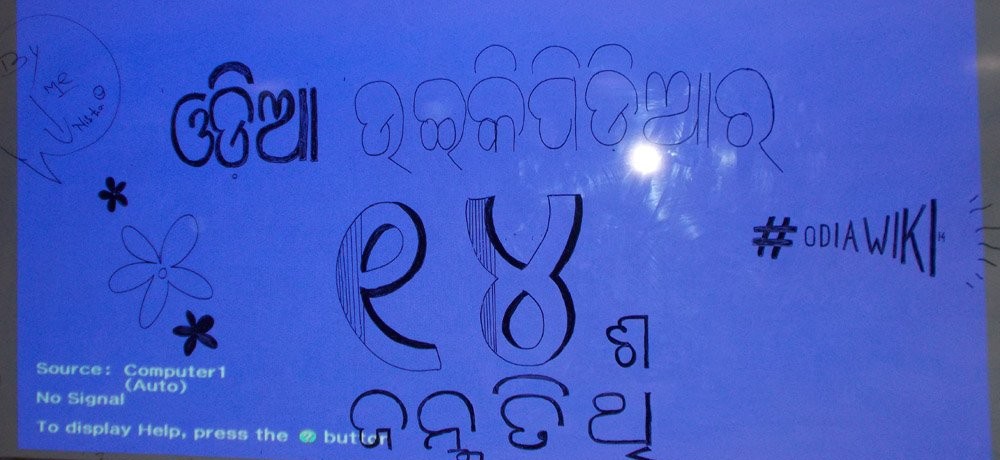 By
Me
Nisha
ଓଡ଼ିଆ ଉଇକିପିଡ଼ିଆର
୧୪ଶ
#ODIAWIKI
ଜନ୍ମତିଥି
Source: Computer1
(Auto)
No Signal
To display Help, press the button